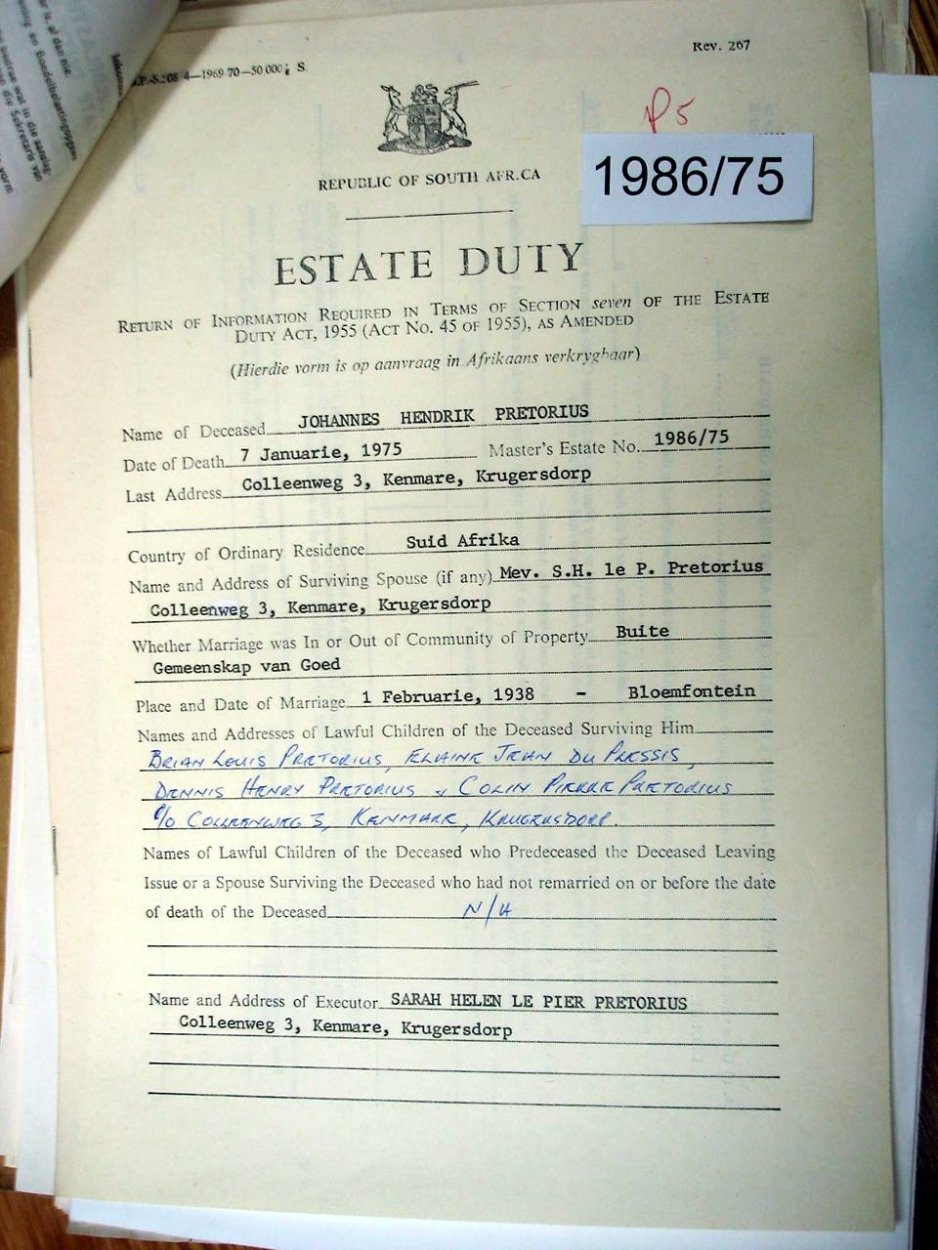 Rev. 267
1969-70—50 000; S.
P5
1986/75
REPUBLIC OF SOUTH AFR.CA
ESTATE DUTY
RETURN OF INFORMATION REQUIRED IN TERMS OF SECTION seven OF THE ESTATE
DUTY ACT, 1955 (ACT NO. 45 OF 1955), AS AMENDED
(Hierdie vorm is op aanvraag in Afrikaans verkrygbaar)
Name of Deceased JOHANNES HENDRIK PRETORIUS
Date of Death 7 Januarie, 1975 Master's Estate No. 1986/75
Last Address Colleenweg 3, Kenmare, Krugersdorp
Country of Ordinary Residence Suid Afrika
Name and Address of Surviving Spouse (if any) Mev. S.H. le P. Pretorius
Colleenweg 3, Kenmare, Krugersdorp
Whether Marriage was In or Out of Community of Property Buite
Gemeenskap van Goed
Place and Date of Marriage 1 Februarie, 1938 - Bloemfontein
Names and Addresses of Lawful Children of the Deceased Surviving Him
BRIAN LOUIS PRETORIUS, ELAINE JEAN DU PLESSIS,
DENNIS HENRY PRETORIUS COLIN PIERRE PRETORIUS
c/o COLLEENWEG 3, KENMARE, KRUGERSDORP.
Names of Lawful Children of the Deceased who Predeceased the Deceased Leaving
Issue or a Spouse Surviving the Deceased who had not remarried on or before the date
of death of the Deceased N/A
Name and Address of Executor SARAH HELEN LE PIER PRETORIUS
Colleenweg 3, Kenmare, Krugersdorp